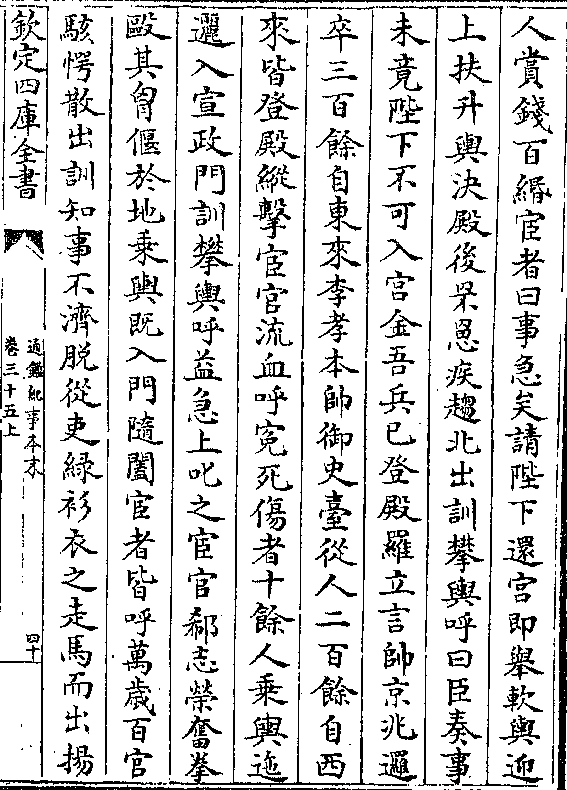 人賞錢百緡宦者曰事急矣請陛下還宮即舉軟輿迎
上扶升輿決殿後罘罳疾趨北出訓攀輿呼曰臣奏事
未竟陛下不可入宮金吾兵已登殿羅立言帥京兆邏
卒三百餘自東來李孝本帥御史臺從人二百餘自西
來皆登殿縱擊宦官流血呼寃死傷者十餘人乗輿迤
邐入宣政門訓攀輿呼益急上叱之宦官郗志榮奮拳
毆其胷偃於地乗輿既入門隨闔宦者皆呼萬歲百官
駭愕散出訓知事不濟脱從吏緑衫衣之走馬而出揚
欽定四庫全書
通鑑紀事本末
卷三十五上
四十